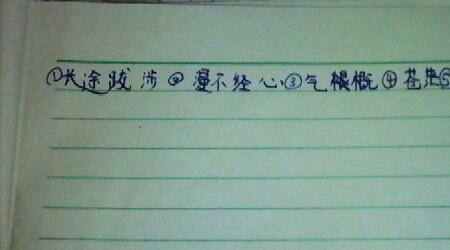 ①长途跋涉②漫不经心③气概④苍茫⑤